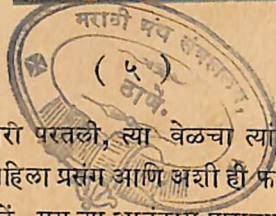 मराठी ग्रंथ संग्रहालय,
( ५ )
ठाणे.
री परतली, त्या वेळचा त्यां
हिला प्रसग आणि अशी ही फ